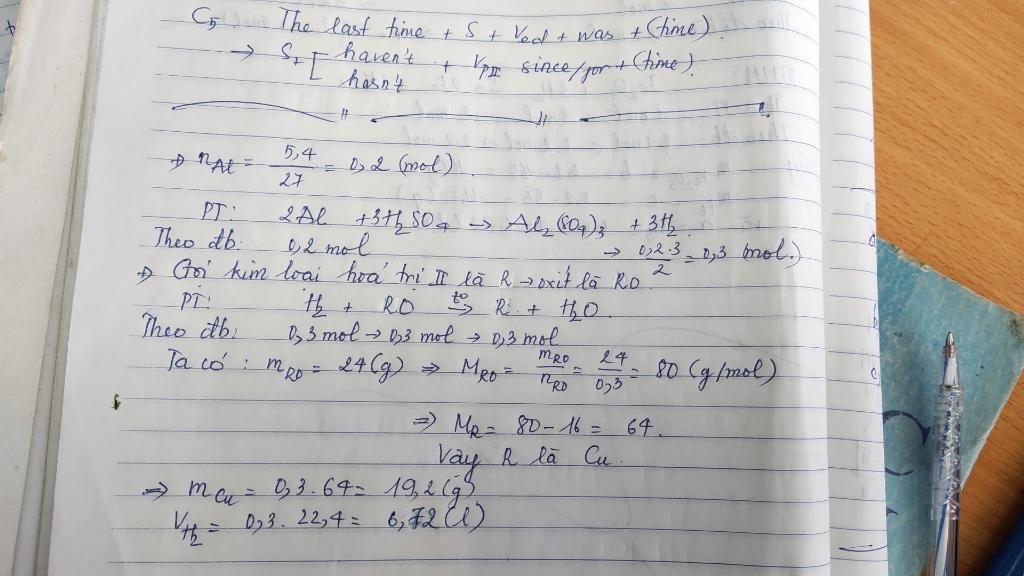 C5, The last time + S + Ved + was + (time).
→ S + [ haven't / hasn't + VpII since/for + (time).
→ nAl = 5,4/27 = 0,2 (mol).
PT: 2Al + 3H2SO4 → Al2(SO4)3 + 3H2.
Theo đb: 0,2 mol → 0,2.3/2 = 0,3 (mol.)
→ Gọi kim loại hoá trị II là R → oxit là RO.
PT: H2 + RO t°→ R + H2O.
Theo đb: 0,3 mol → 0,3 mol → 0,3 mol
Ta có: mRO = 24 (g) ⇒ MRO = mRO/nRO = 24/0,3 = 80 (g/mol)
⇒ MR = 80 - 16 = 64.
Vậy R là Cu.
⇒ mCu = 0,3 . 64 = 19,2 (g)
VH2 = 0,3 . 22,4 = 6,72 (l)